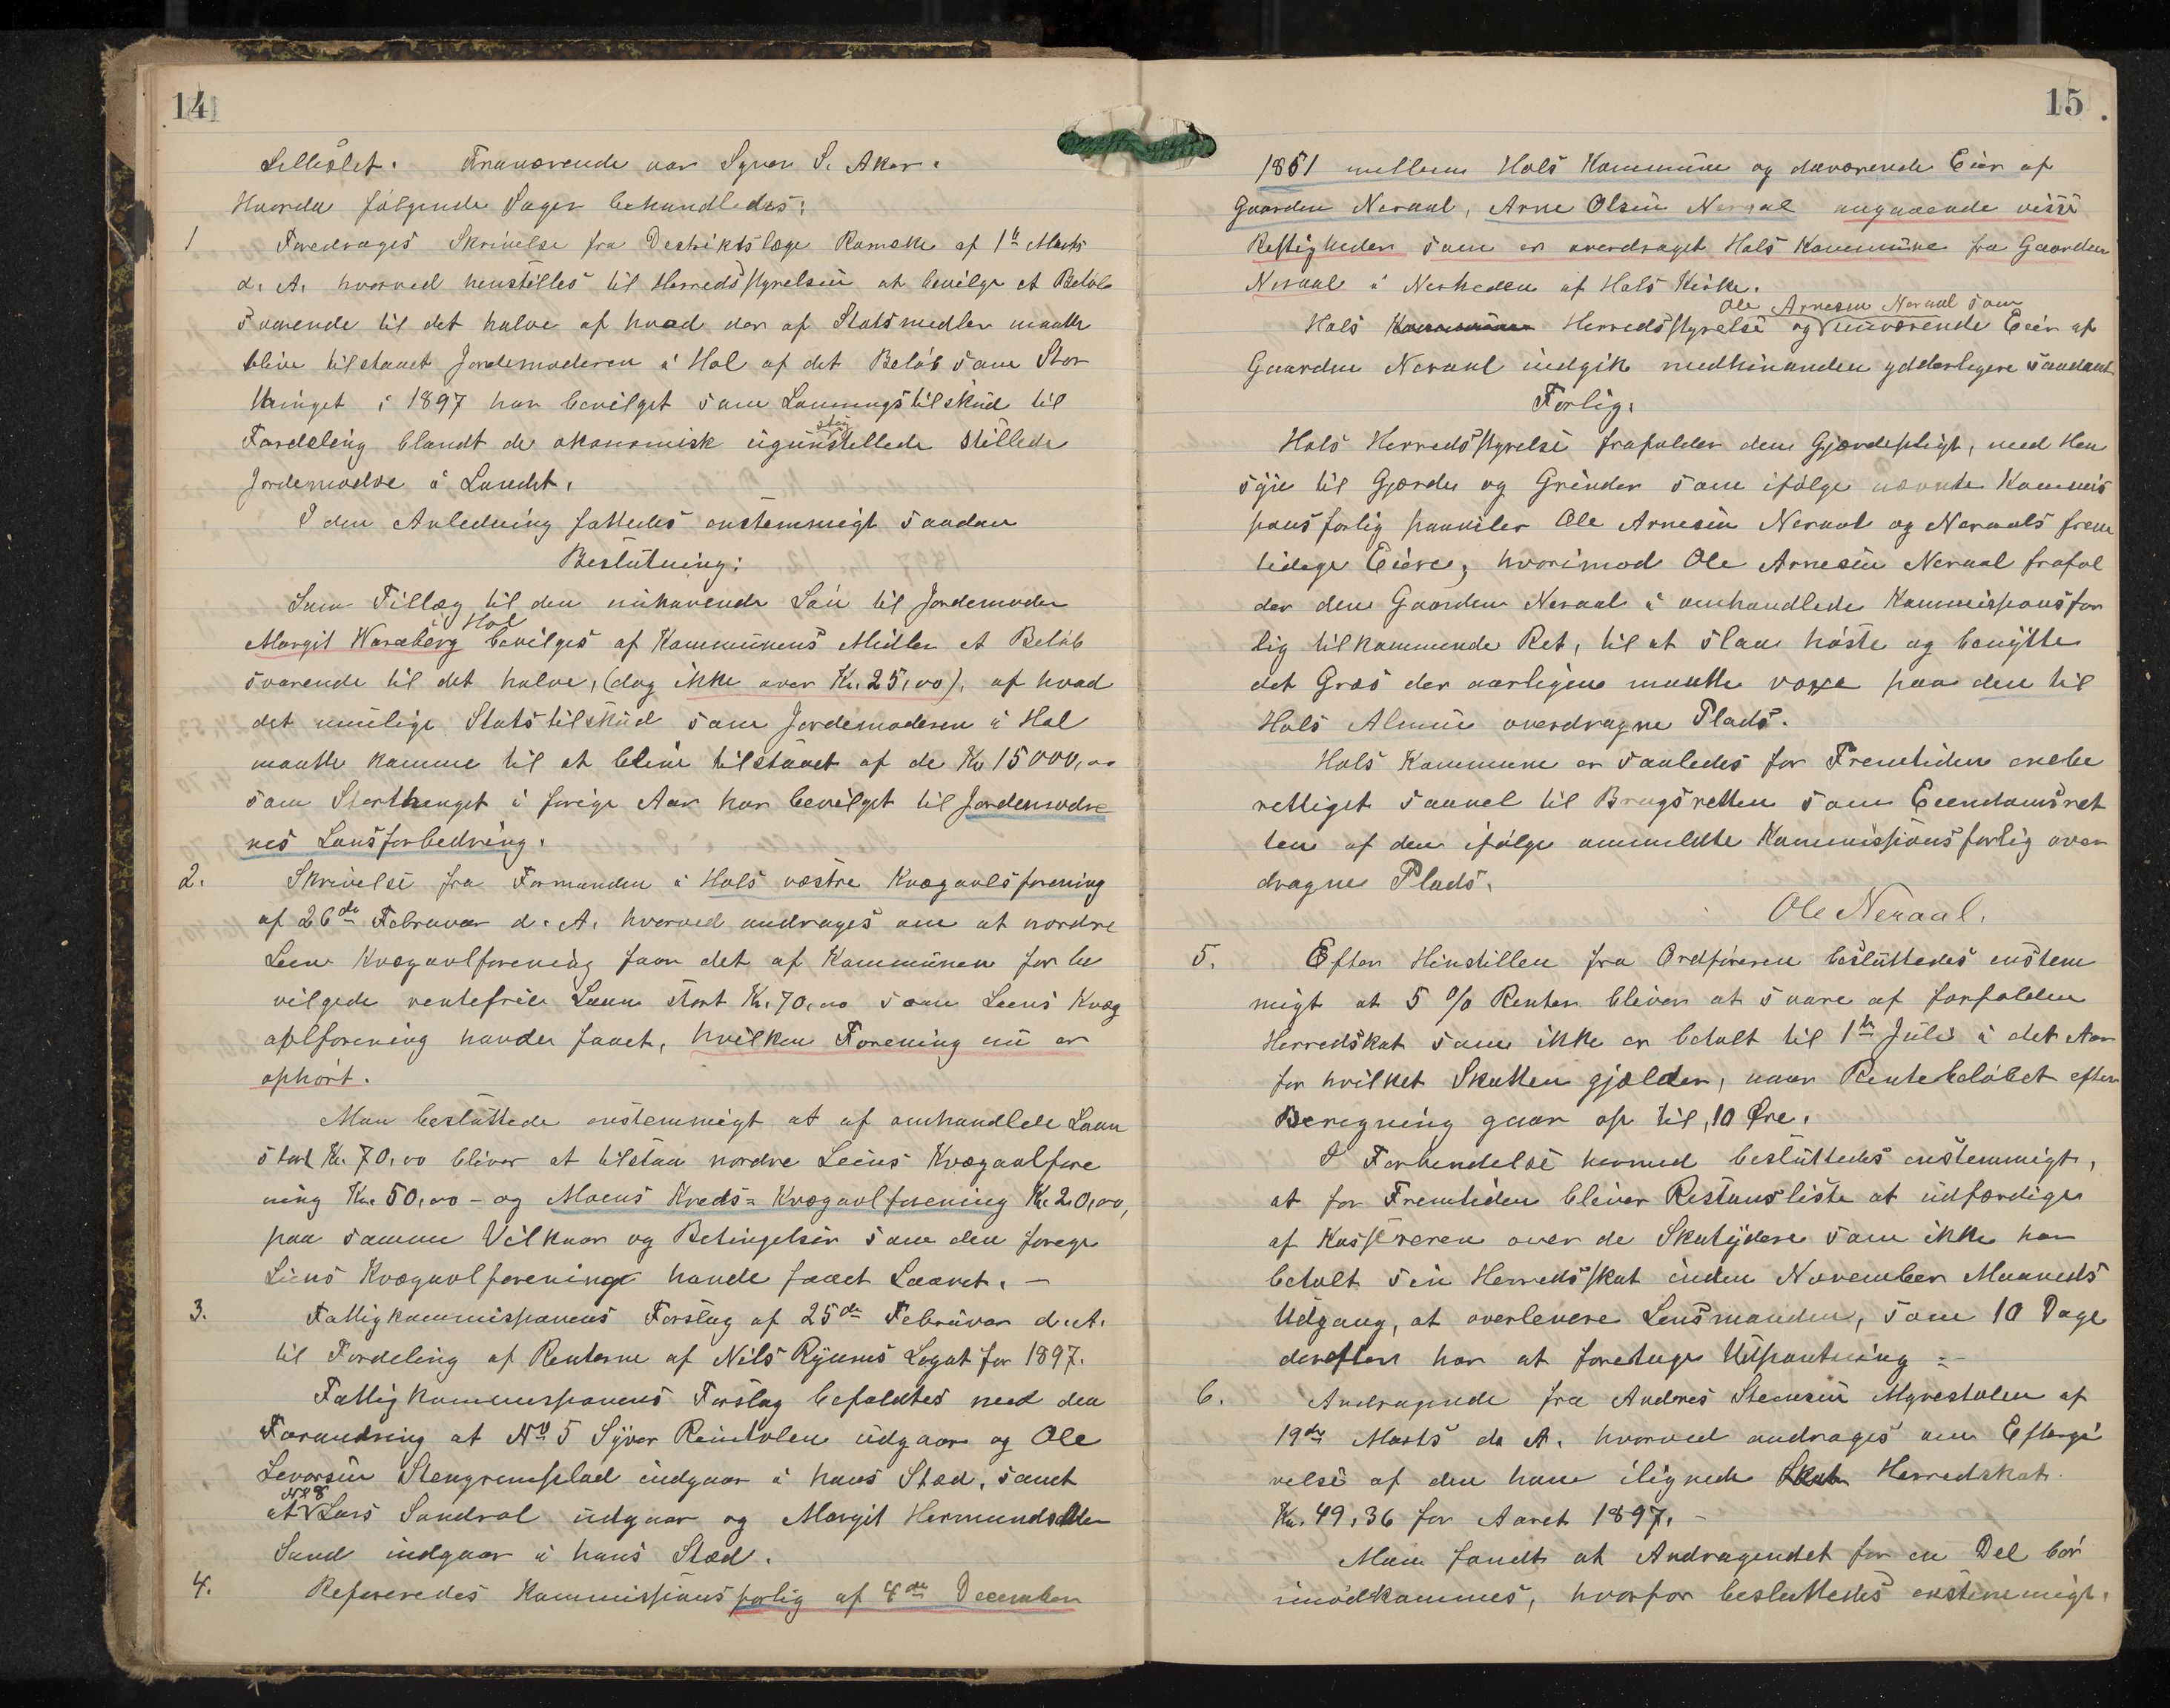 14
Lilleslet. Fraværende var Syver S. Aker.
Hvorda følgende Sager behandledes:
1 Foredrages Skrivelse fra Destriktslæge Ramske af 1ste Marts
d. A. hvorved henstilles til Herredsstyrelsen at bevilge et Beløb
svarende til det halve af hvad der af Statsmedler maatte
blive tilstaaet Jordemoderen i Hol af det Beløb som Stor
thinget i 1897 har bevilget som Lønningstilskud til
Fordeling blandt de økonomisk ugunstellede stillede
Jordemødre i Landet.
I den Anledning fattedes enstemmigt saadan
Beslutning:
Som Tillæg til den nuhavende Løn til Jordemoder
i Hol
Margit Waraberg bevilges af Kommunens Midler et Beløb
svarende til det halve, (dog ikke over Kr. 25,00), af hvad
det mulige Statstilskud som Jordemoderen i Hol
maatte komme til at blive tilstaaet af de Kr 15000,00
som Storthinget i forige Aar har bevilget til Jordemødre
nes Lønsforbedring.
2. Skrivelse fra Formanden i Hols væstre Kvægavlsforening
af 26de Februar d. A. hvorved andrages om at nordre
Leine Kvægavlforening faar det af Kommunen for be
vilgede rentefrie Laan stort Kr. 70,00 som Leens Kvæg
avlforening havde faaet, hvilken Forening nu er
ophørt.
Man besluttede enstemmigt at af omhandlede Laan
stort Kr. 70,00 bliver at tilstaa nordre Leens Kvægavlfore
ning Kr. 50,00 – og Moens Kreds= Kvægavlforening Kr. 20,00,
paa samme Vilkaar og Betingelser som den forege
Liens Kvægavlforening havde faaet Laanet. –
3. Fattigkommissionens Forslag af 25de Februar d. A.
til Fordeling af Renterne af Nils Ryums Legat for 1897.
Fattigkommissionens Forslag befaldtes med den
Forandring at No 5 Syver Reinlolen udgaar og Ole
Levorsen Stengrensplad indgaar i hans Sted, samt
No 8
at Lars Sundvol udgaar og Margit Hermundsdtter
Sund indgaar i hans Sted.
4. Refereredes Kommissionsforlig af 4de December
15
1851 mellem Hols Kommune og daværende Eier af
Gaarden Neraal, Arne Olsen Neraal angaaende visse
Rettigheder som er overdraget Hols Kommune fra Gaarden
Neraal i Nerheden af Hols Kirke.
Ole Arnesen Neraal som
Hols Kommune Herredsstyrelse og nuværende Eier af
Gaarden Neraal indgik medhinanden ydderligere saadant
Forlig:
Hols Herredsstyrelse frafalder den Gjærdepligt, med Hen
syn til Gjærder og Grinder som ifølge nævnte Kommis
sons forlig paaviler Ole Arnesen Neraal og Neraals frem
tidige Eiere, hvorimod Ole Arnesen Neraal frafal
der den Gaarden Neraal i omhandlede Kommissionsfor
lig tilkommende Ret, til at slaa høste og benytte
det Græs der aarligen maatte voxe paa den til
Hols Almue overdragne Plads.
Hols Kommune er saaledes for Fremtiden enebe
rettiget saavel til Brugsretten som Eiendomsret
ten af den ifølge ommeldte Kommissionsforlig over
dragne Plads.
Ole Neraal.
5. Efter Hinstillen fra Ordføreren besluttedes enstem
migt at 5 % Renter bliver at svare af forfalden
Herredskat som ikke er betalt til 1ste Juli i det Aar
for hvilket Skatten gjælder, naar Rentebeløbet efter
Beregning gaar op til 10 Øre.
I Forbindelse hermed besluttedes enstemmigt,
at for Fremtiden bliver Restanseliste at udfærdige
af Kassereren over de Skatydere som ikke har
betalt sin Herredsskat inden November Maaneds
Udgang, at overlevere Lensmanden, som 10 Dage
derefter har at foretage Utpantning. –
6. Andragende fra Andres Steensen Myrestølen af
19de Marts d. A. hvorved andrages om Eftergi
velse af den ham ilignede Skat Herredskat
Kr. 49,36 for Aaret 1897. –
Man fandt at Andragendet for en Del bør
imødkommes, hvorfor besluttedes enstemmigt.